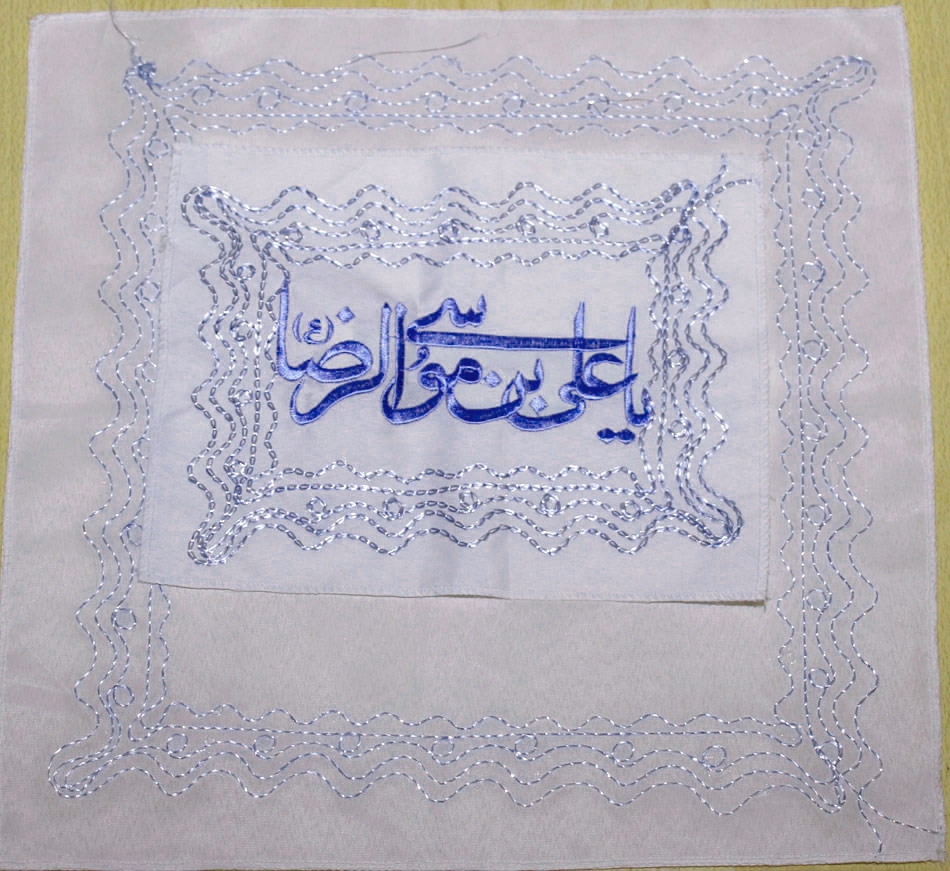 یا علی بن موسی الرضا (ع)